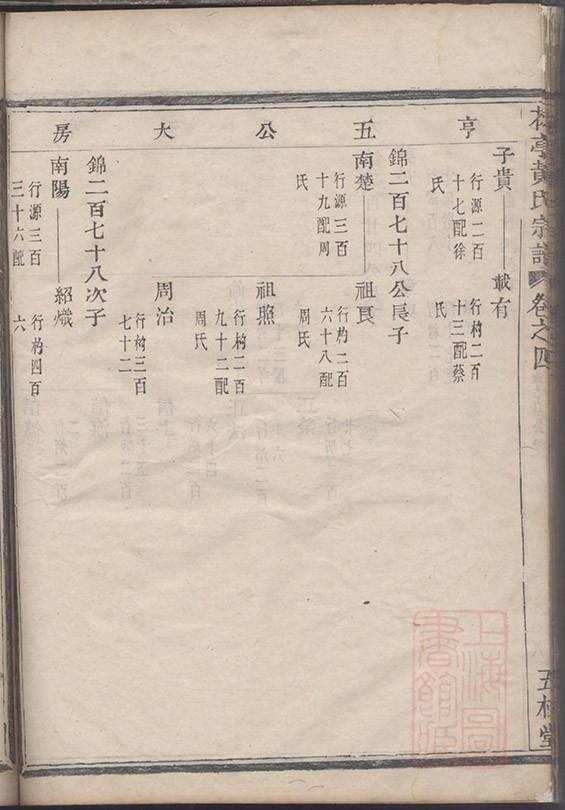 亭黃氏宗譜 卷之四
五桂堂
亨五公大房
子貴 載有
行源二百十七配徐氏
行杓二百十三配蔡氏
錦二百七十八公長子
南楚 祖良
行源三百十九配周氏
行杓二百六十八配周氏
祖照
行杓二百九十二配周氏
周治
行杓三百七十二
錦二百七十八次子
南陽 紹熾
行源三百三十六配
行杓四百六
上海圖書館藏